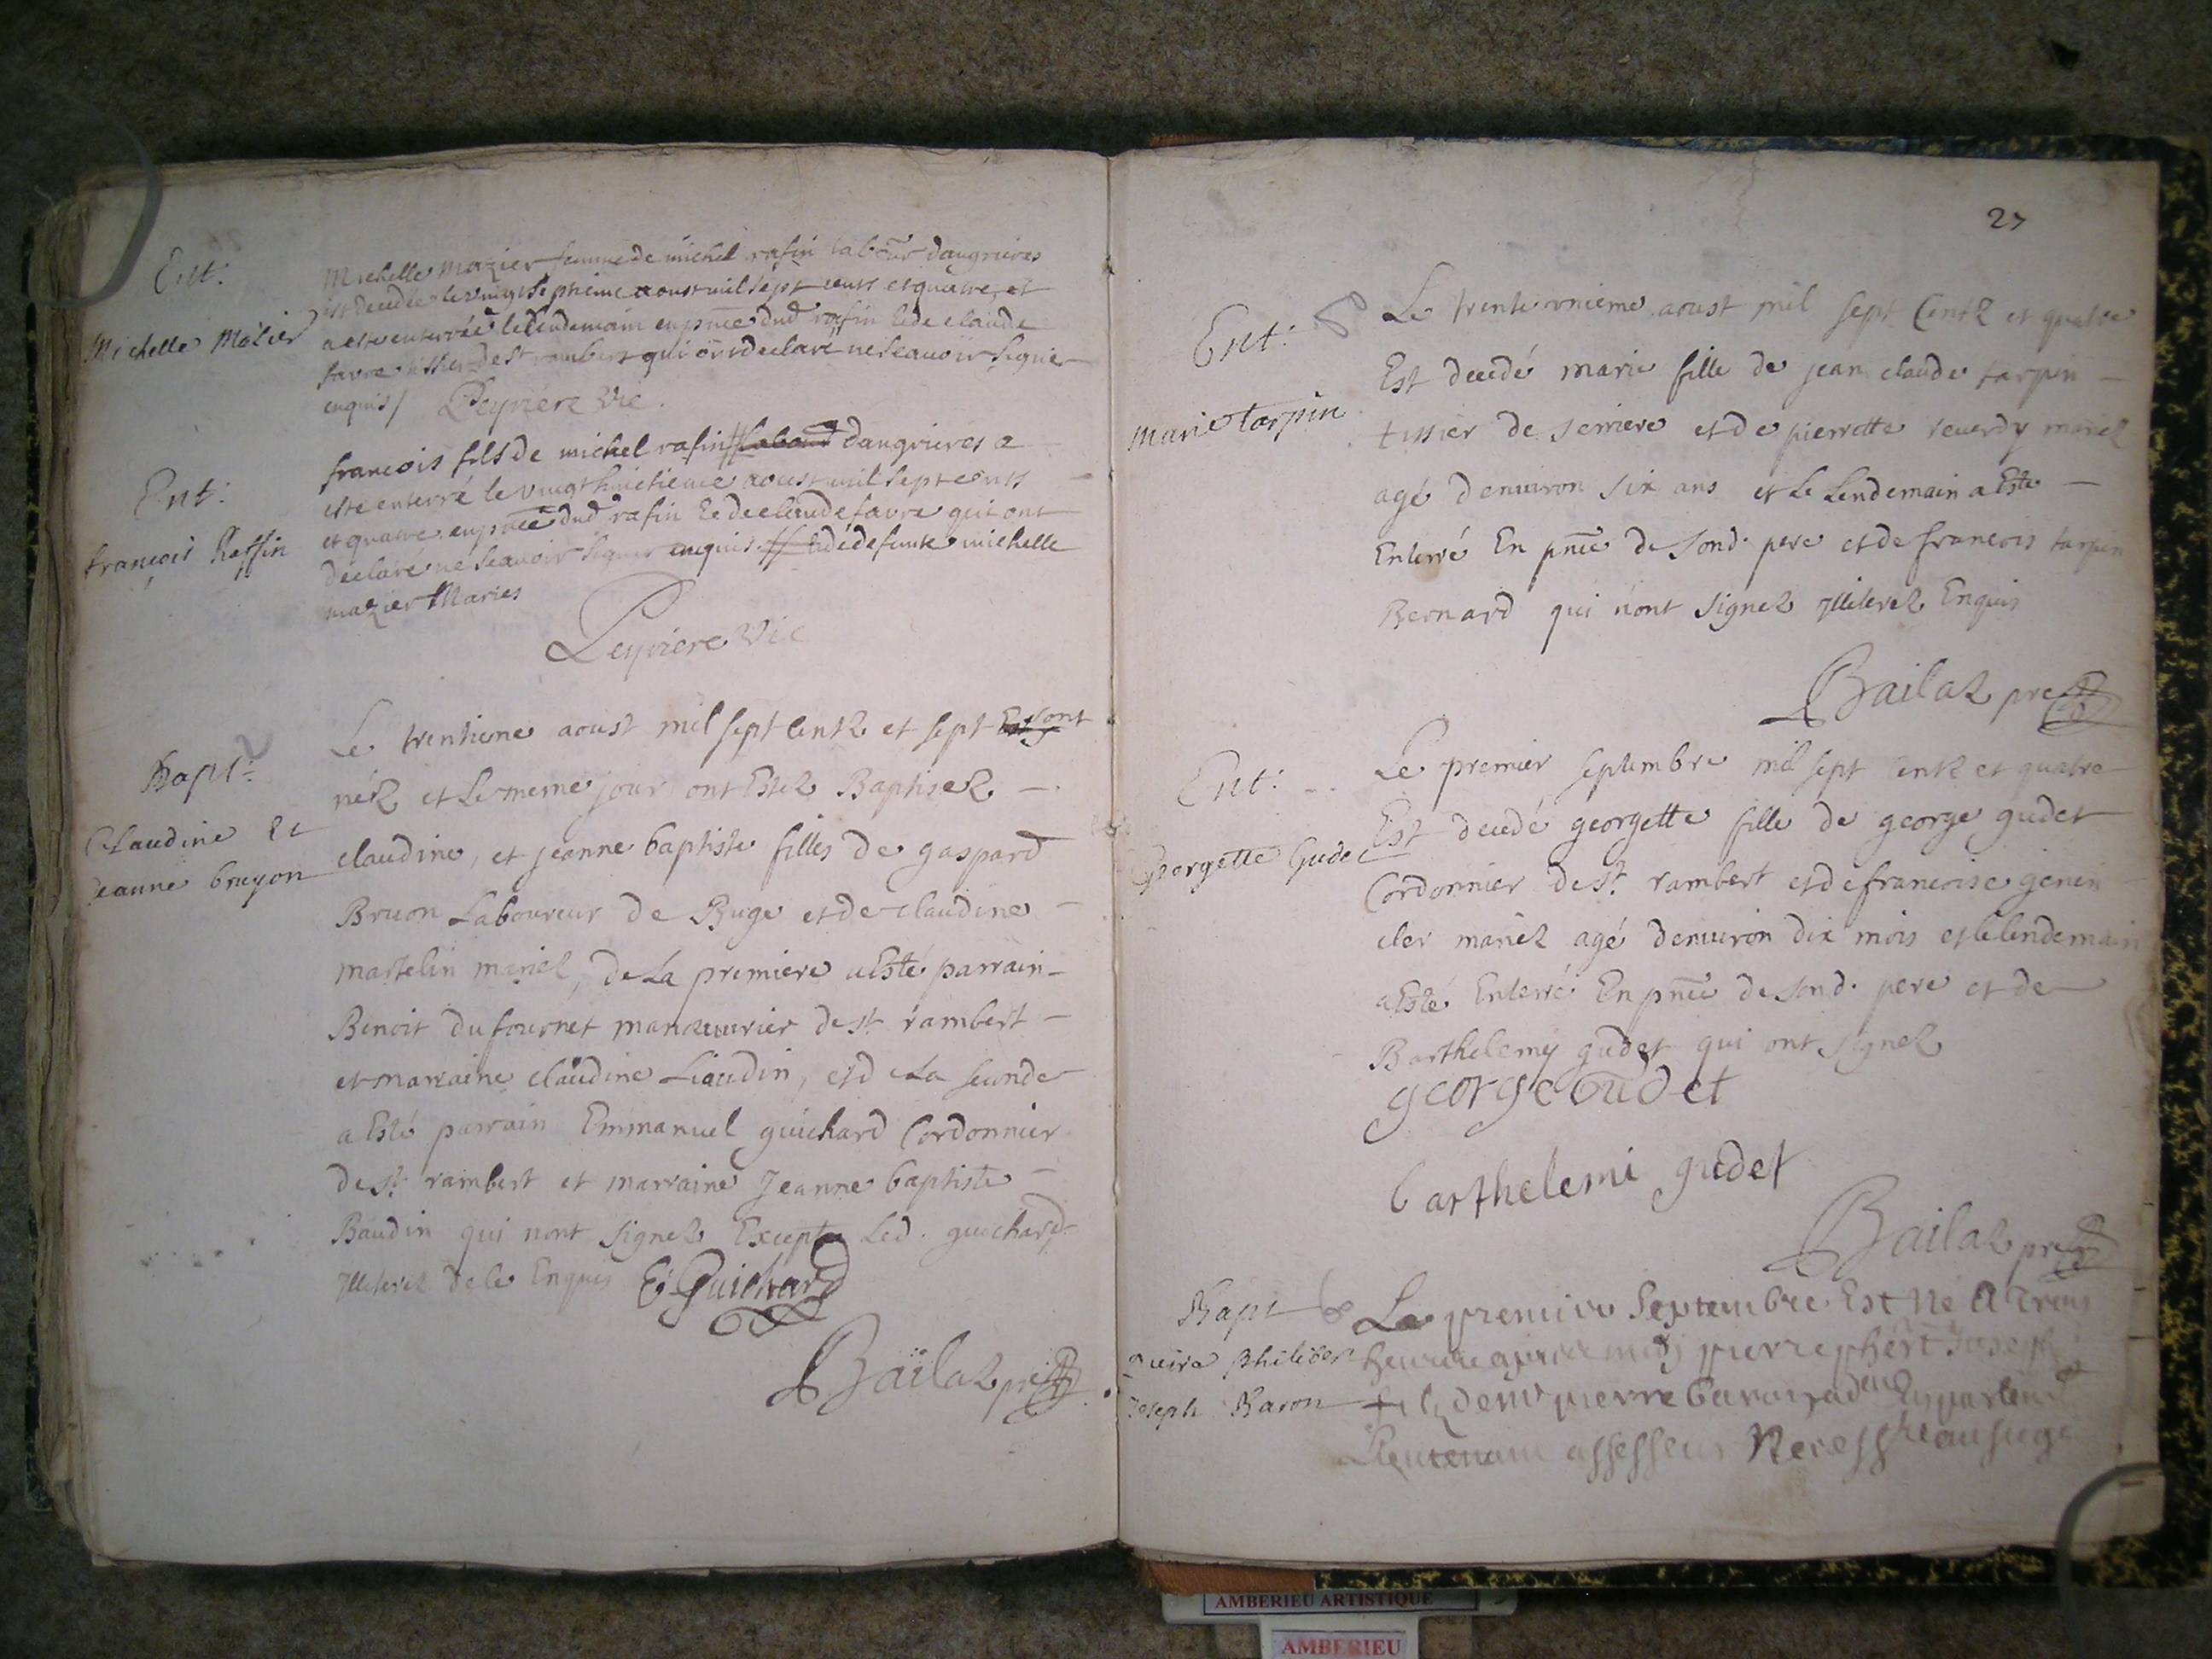 Ent:
Michelle Mazier
Michelle Mazier femme de michel rafin labour daugrieres
est decedée le vingt septieme aoust mil sept cents et quatre, et
a este enterrée le lendemain en pnce dud rafin et de claude
favre tissier de st rambert qui ont declaré ne scavoir signer
enquis / Peyriere Vic.
Ent:
françois Raffin
francois fils de michel rafin daugrieres a
este enterré le vingt huictieme aoust mil sept cents
et quatre en pnce dud rafin et de claude favre qui ont
declaré ne scavoir signer enquis defunte michelle
mazier Maries
Peyriere Vic
Bapt:
Claudine et
Jeanne bruyon
Le trentieme aoust mil sept centz et sept sont
néz et Le meme jour ont Estez Baptisez -
claudine, et jeanne baptiste filles de gaspard
Bruon Laboureur de Buge et de claudine -
martelin mariez, de La premiere a Esté parrain -
Benoit du fournet manouvrier de st rambert -
et marraine claudine Liaudin, et de La seconde
a Esté parrain Emmanuel guichard Cordonnier
de st rambert et marraine Jeanne baptiste -
Baudin qui nont signez Excepte Led. guichard
Illiterez de ce Enquis E Guichard
Bailaz pre
27
Ent:
Marie tarpin
Le trente unieme aoust mil sept Centz et quatre
Est decedé marie fille de jean claude tarpin -
tissier de serriere et de pierrette reverdy mariez
agé denviron six ans et Le Lendemain a Esté -
Enterré En pnce de sond. pere et de francois tarpin
Bernard qui nont signez Illiterez Enquis
Bailaz pre
Ent:
Georgette Gudet
Le premier septembre mil sept centz et quatre
Est decedé georgette fille de george gudet
Cordonnier de st. rambert et de francoise genin
cler mariez agé denviron dix mois et le lendemain
a Esté Enterré En pnce de sond. pere et de
Barthelemy gudet qui ont signez
george Gudet
barthelemi gudet
Bailaz pre
Bapt
pierre philibert
Joseph Baron
Le premier Septembre Est Né A trois
heures apres midy pierre phert Joseph
filz de mr pierre baron adeut En parlemt
Lieutenant assesseur
AMBERIEU ARTISTIQUE
AMBERIEU